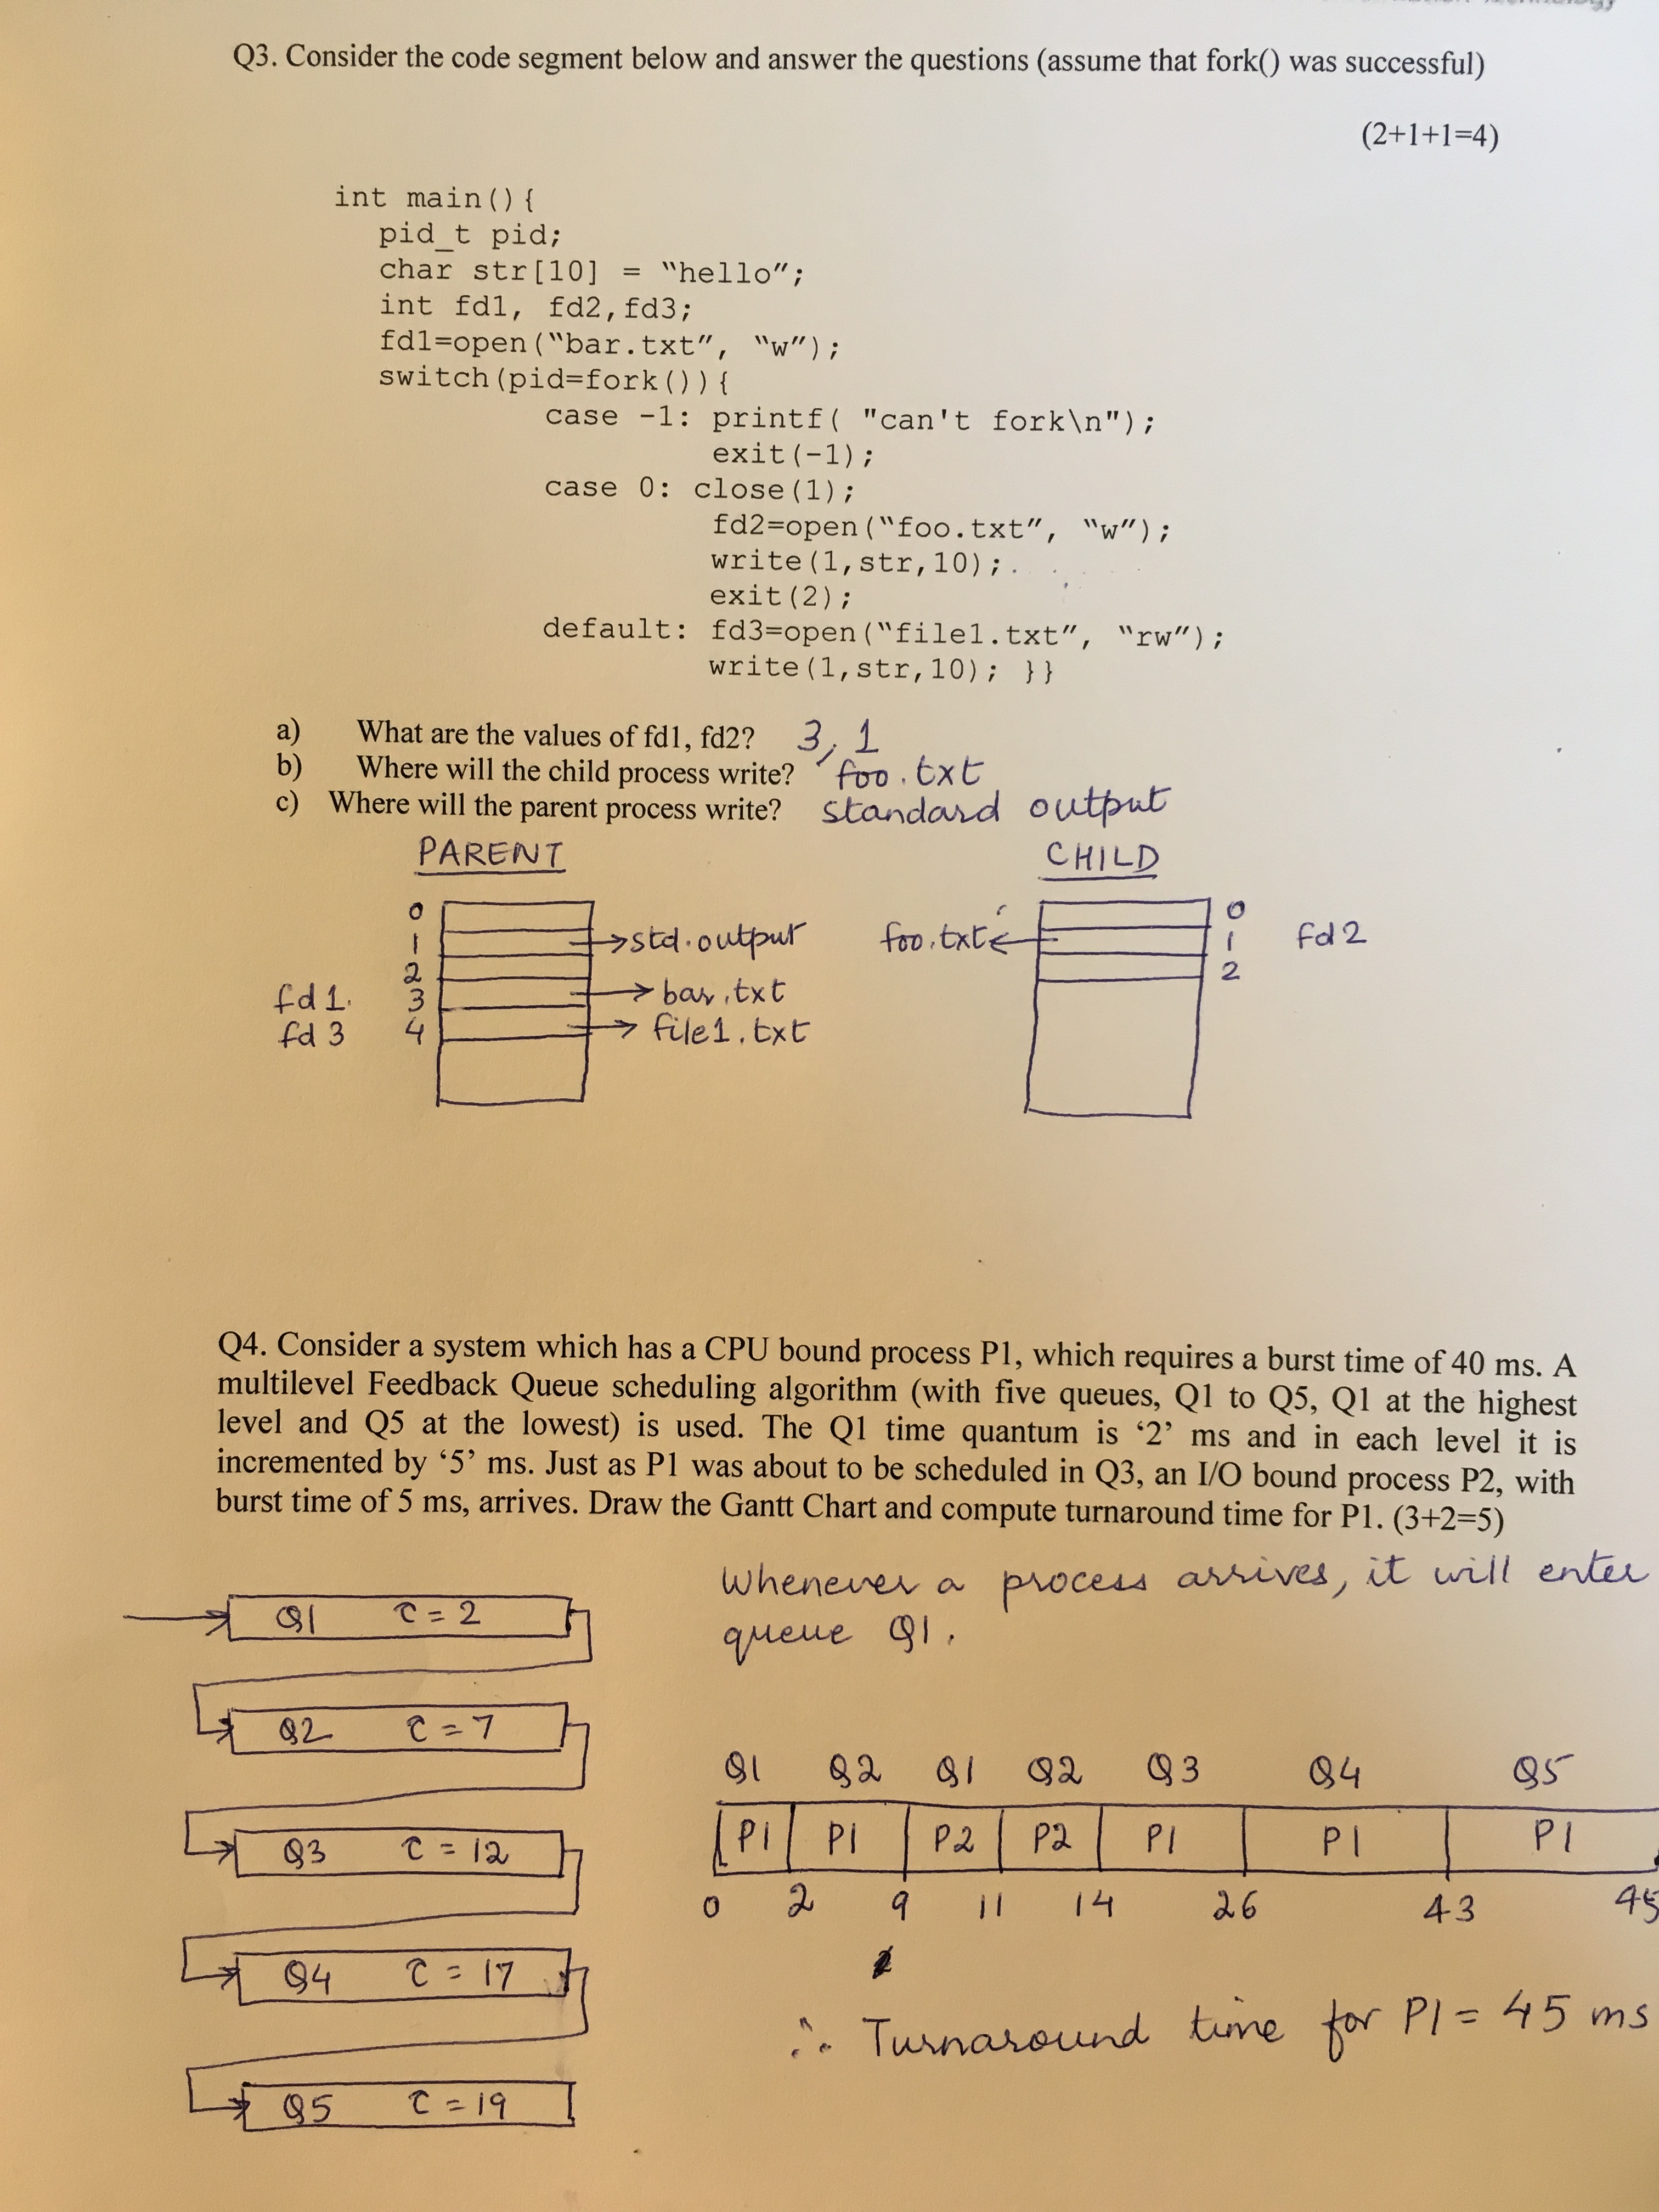 Q3. Consider the code segment below and answer the questions (assume that fork() was successful)
(2+1+1=4)
int main(){
pid_t pid;
char str[10] = “hello”;
int fd1, fd2,fd3;
fd1=open(“bar.txt”, “w”);
switch(pid=fork()){
case -1: printf( "can't fork\n");
exit(-1);
case 0: close(1);
fd2=open(“foo.txt”, “w”);
write(1,str,10);
exit(2);
default: fd3=open(“file1.txt”, “rw”);
write(1,str,10); }}
a) What are the values of fd1, fd2? 3, 1
b) Where will the child process write? foo.txt
c) Where will the parent process write? standard output
PARENT CHILD
0 0
1 std.output foo.txt 1 fd2
2 2
fd1. 3 bar.txt
fd 3 4 file1.txt
Q4. Consider a system which has a CPU bound process P1, which requires a burst time of 40 ms. A
multilevel Feedback Queue scheduling algorithm (with five queues, Q1 to Q5, Q1 at the highest
level and Q5 at the lowest) is used. The Q1 time quantum is ‘2’ ms and in each level it is
incremented by ‘5’ ms. Just as P1 was about to be scheduled in Q3, an I/O bound process P2, with
burst time of 5 ms, arrives. Draw the Gantt Chart and compute turnaround time for P1. (3+2=5)
Whenever a process arrives, it will enter
queue Q1.
Q1 τ = 2
Q2 τ = 7
Q3 τ = 12
Q4 τ = 17
Q5 τ = 19
Q1 Q2 Q1 Q2 Q3 Q4 Q5
P1 P1 P2 P2 P1 P1 P1
0 2 9 11 14 26 43 45
∴ Turnaround time for P1 = 45 ms